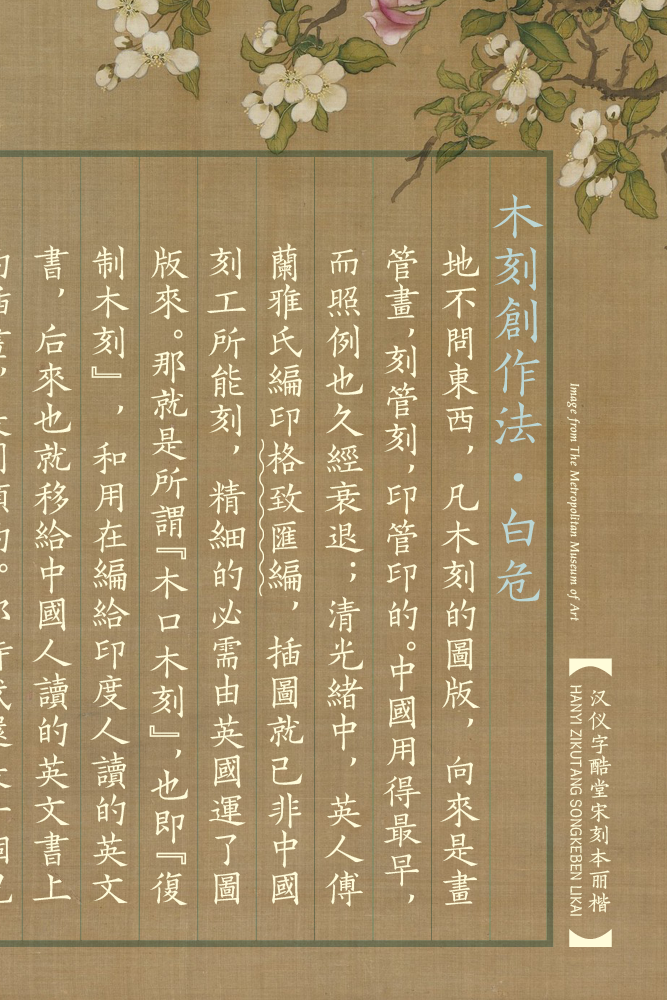 木刻創作法・白危
地不問東西，凡木刻的圖版，向來是畫
管畫，刻管刻，印管印的。中國用得最早，
而照例也久經衰退；清光緒中，英人傅
蘭雅氏編印格致匯編，插圖就已非中國
刻工所能刻，精細的必需由英國運了圖
版來。那就是所謂『木口木刻』，也即『復
制木刻』，和用在編給印度人讀的英文
書，后來也就移給中國人讀的英文書上
Image from The Metropolitan Museum of Art
汉仪字酷堂宋刻本丽楷
HANYI ZIKUTANG SONGKEBEN LIKAI